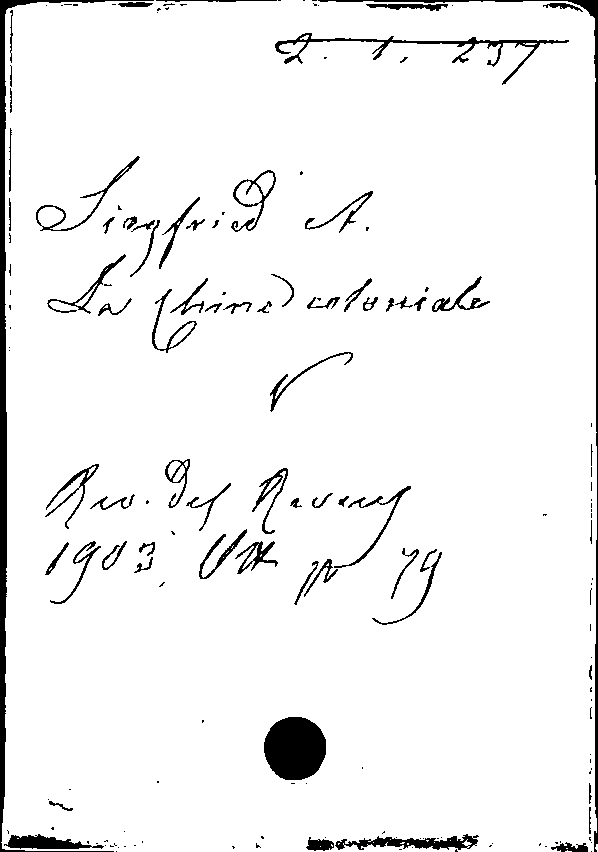 2. 1. 237
Siegfried A.
La Chine coloniale
Rev. des Revues
1903. VII p 79